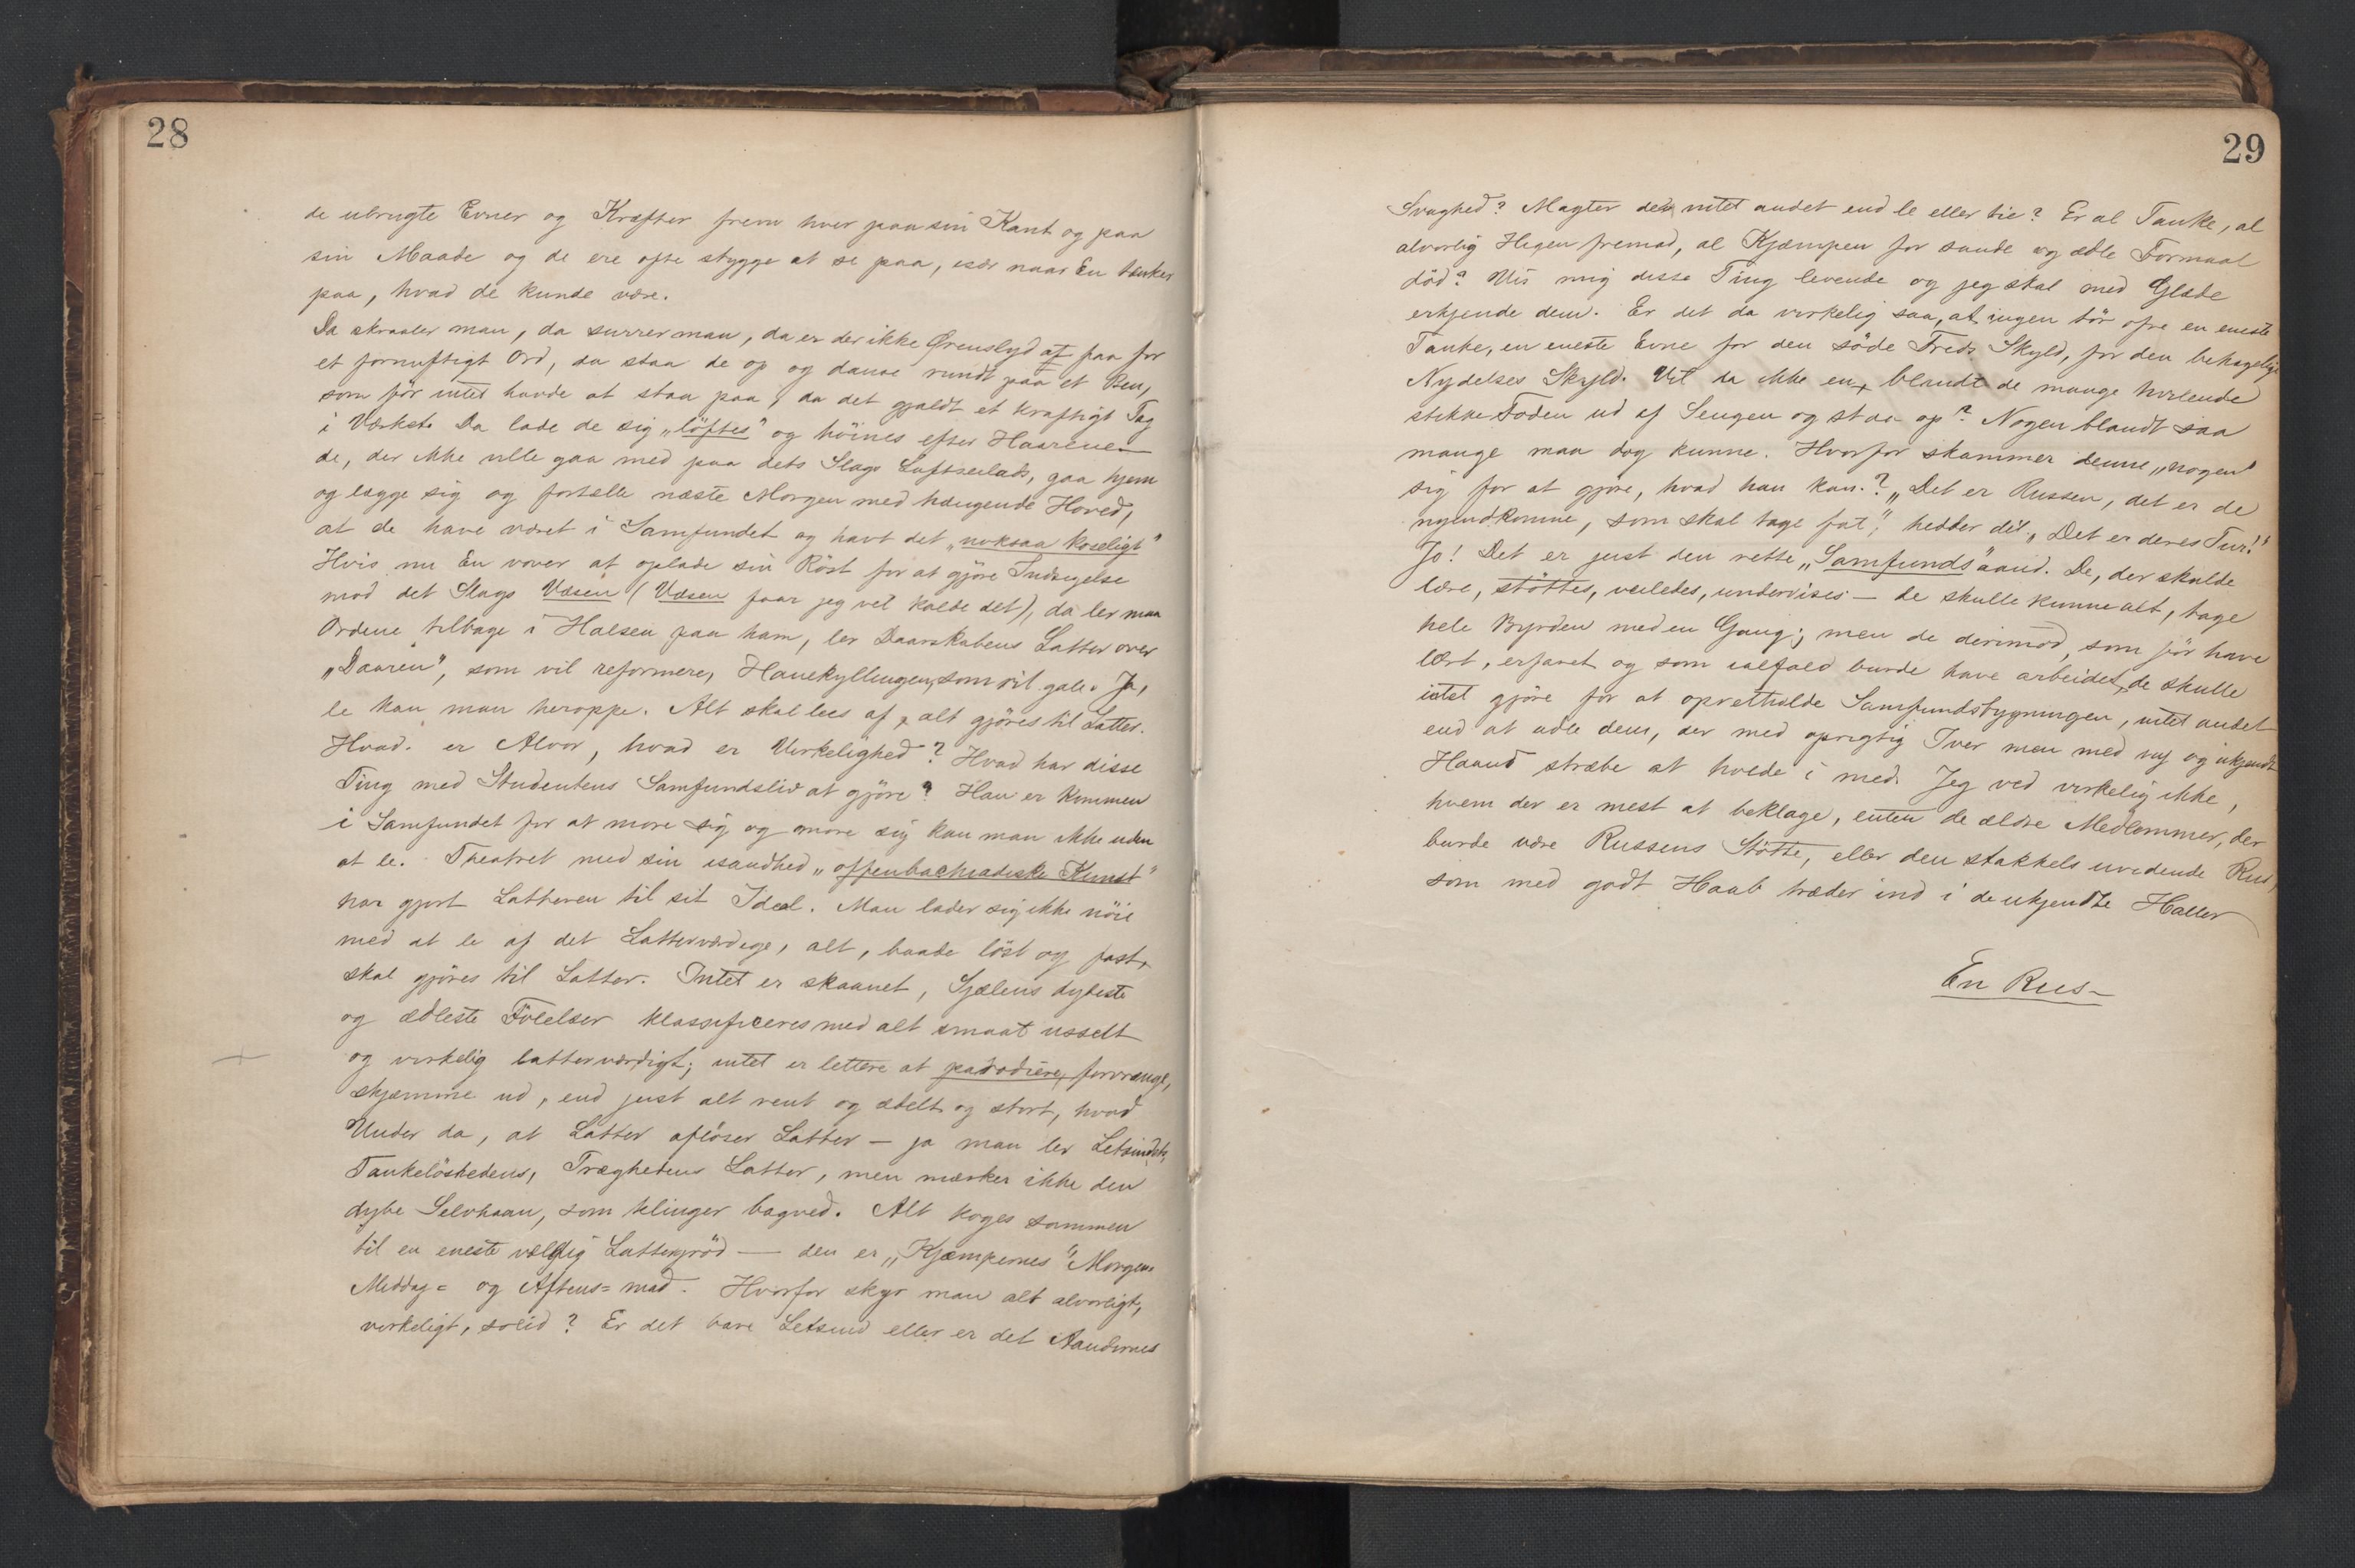 28
de ubrugte Evner og Kræfter frem hver paa sin Kant og paa
sin Maade og de ere ofte stygge at se paa, især naar En tænker
paa, hvad de kunde være.
Da skraaler man, da surrer man, da er der ikke Ørenslyd at faa for
et fornuftigt Ord, da staa de op og danse rundt paa et Ben,
som før intet havde at staa paa, da det gjaldt et kraftigt Tag
i Værket. Da lade de sig „løftes" og høines efter Haarene
de, der ikke ville gaa med paa dets Slags Luftseilads, gaa hjem
og lægge sig og fortælle næste Morgen med hængende Hoved,
at de have været i Samfundet og havt det „noksaa koseligt"
Hvis nu En vover at oplade sin Røst for at gjøre Indsigelse
mod det Slags Væsen (Væsen faar jeg vel kalde det), da ler man
Ordene tilbage i Halsen paa ham, ler Daarskabens Latter over
„Daaren", som vil reformere, Hanekyllingen, som vil gale. Ja,
le kan man heroppe. Alt skal lees af, alt gjøres til Latter.
Hvad er Alvor, hvad er Virkelighed? Hvad har disse
Ting med Studentens Samfundsliv at gjøre? Han er kommen
i Samfundet for at more sig og more sig kan man ikke uden
at le. Theatret med sin isandhed „offenbachiadiske Kunst"
har gjort Latteren til sit Ideal. Man lader sig ikke nøie
med at le af det Latterværdige, alt, baade løst og fast,
skal gjøres til Latter. Intet er skaanet, Sjælens dybeste
og ædleste Følelser klassificeres med alt smaat usselt
og virkelig latterværdigt; intet er lettere at parodiere, forvrænge,
skjæmme ud, end just alt rent og ædelt og stort, hvad
Under da, at Latter afløser Latter – ja man ler Letsindets,
Tankeløshedens, Træghedens Latter, men mærker ikke den
dybe Selvhaan, som klinger bagved. Alt koges sammen
til en eneste vældig Lattergrød — den er „Kjæmpernes" Morgen-
Middag- og Aftens-mad. Hvorfor skyr man alt alvorligt,
virkeligt, solid? Er det bare Letsind eller er det Aandernes
29
Svaghed? Magter de intet andet end le eller tie? Er al Tanke, al
alvorlig Higen fremad, al Kjæmpen for sande og ædle Formaal
død? Vis mig disse Ting levende og jeg skal med Glæde
erkjende dem. Er det da virkelig saa, at ingen tør ofre en eneste
Tanke, en eneste Evne for den søde Freds Skyld, for den behagelige
Nydelses Skyld. Vil da ikke en blandt de mange hvilende
stikke Foden ud af Sengen og staa op? Nogen blandt saa
mange maa dog kunne. Hvorfor skammer denne „nogen"
sig for at gjøre, hvad han kan? „Det er Russen, det er de
nyindkomne, som skal tage fat," hedder det. „Det er deres Tur!"
Jo! Det er just den rette „Samfunds"aand. De, der skulde
lære, støttes, veiledes, undervises – de skulle kunne alt, tage
hele Byrden med en Gang; men de derimod, som før have
lært, erfaret og som ialfald burde have arbeidet, de skulle
intet gjøre for at opretholde Samfundsbygningen, intet andet
end at udle dem, der med oprigtig Iver men med ny og ukjendt
Haand stræbe at holde i med. Jeg ved virkelig ikke,
hvem der er mest at beklage, enten de ældre Medlemmer, der
burde være Russens Støtte, eller den stakkels uvidende Rus,
som med godt Haab træder ind i de ukjendte Haller
En Rus–